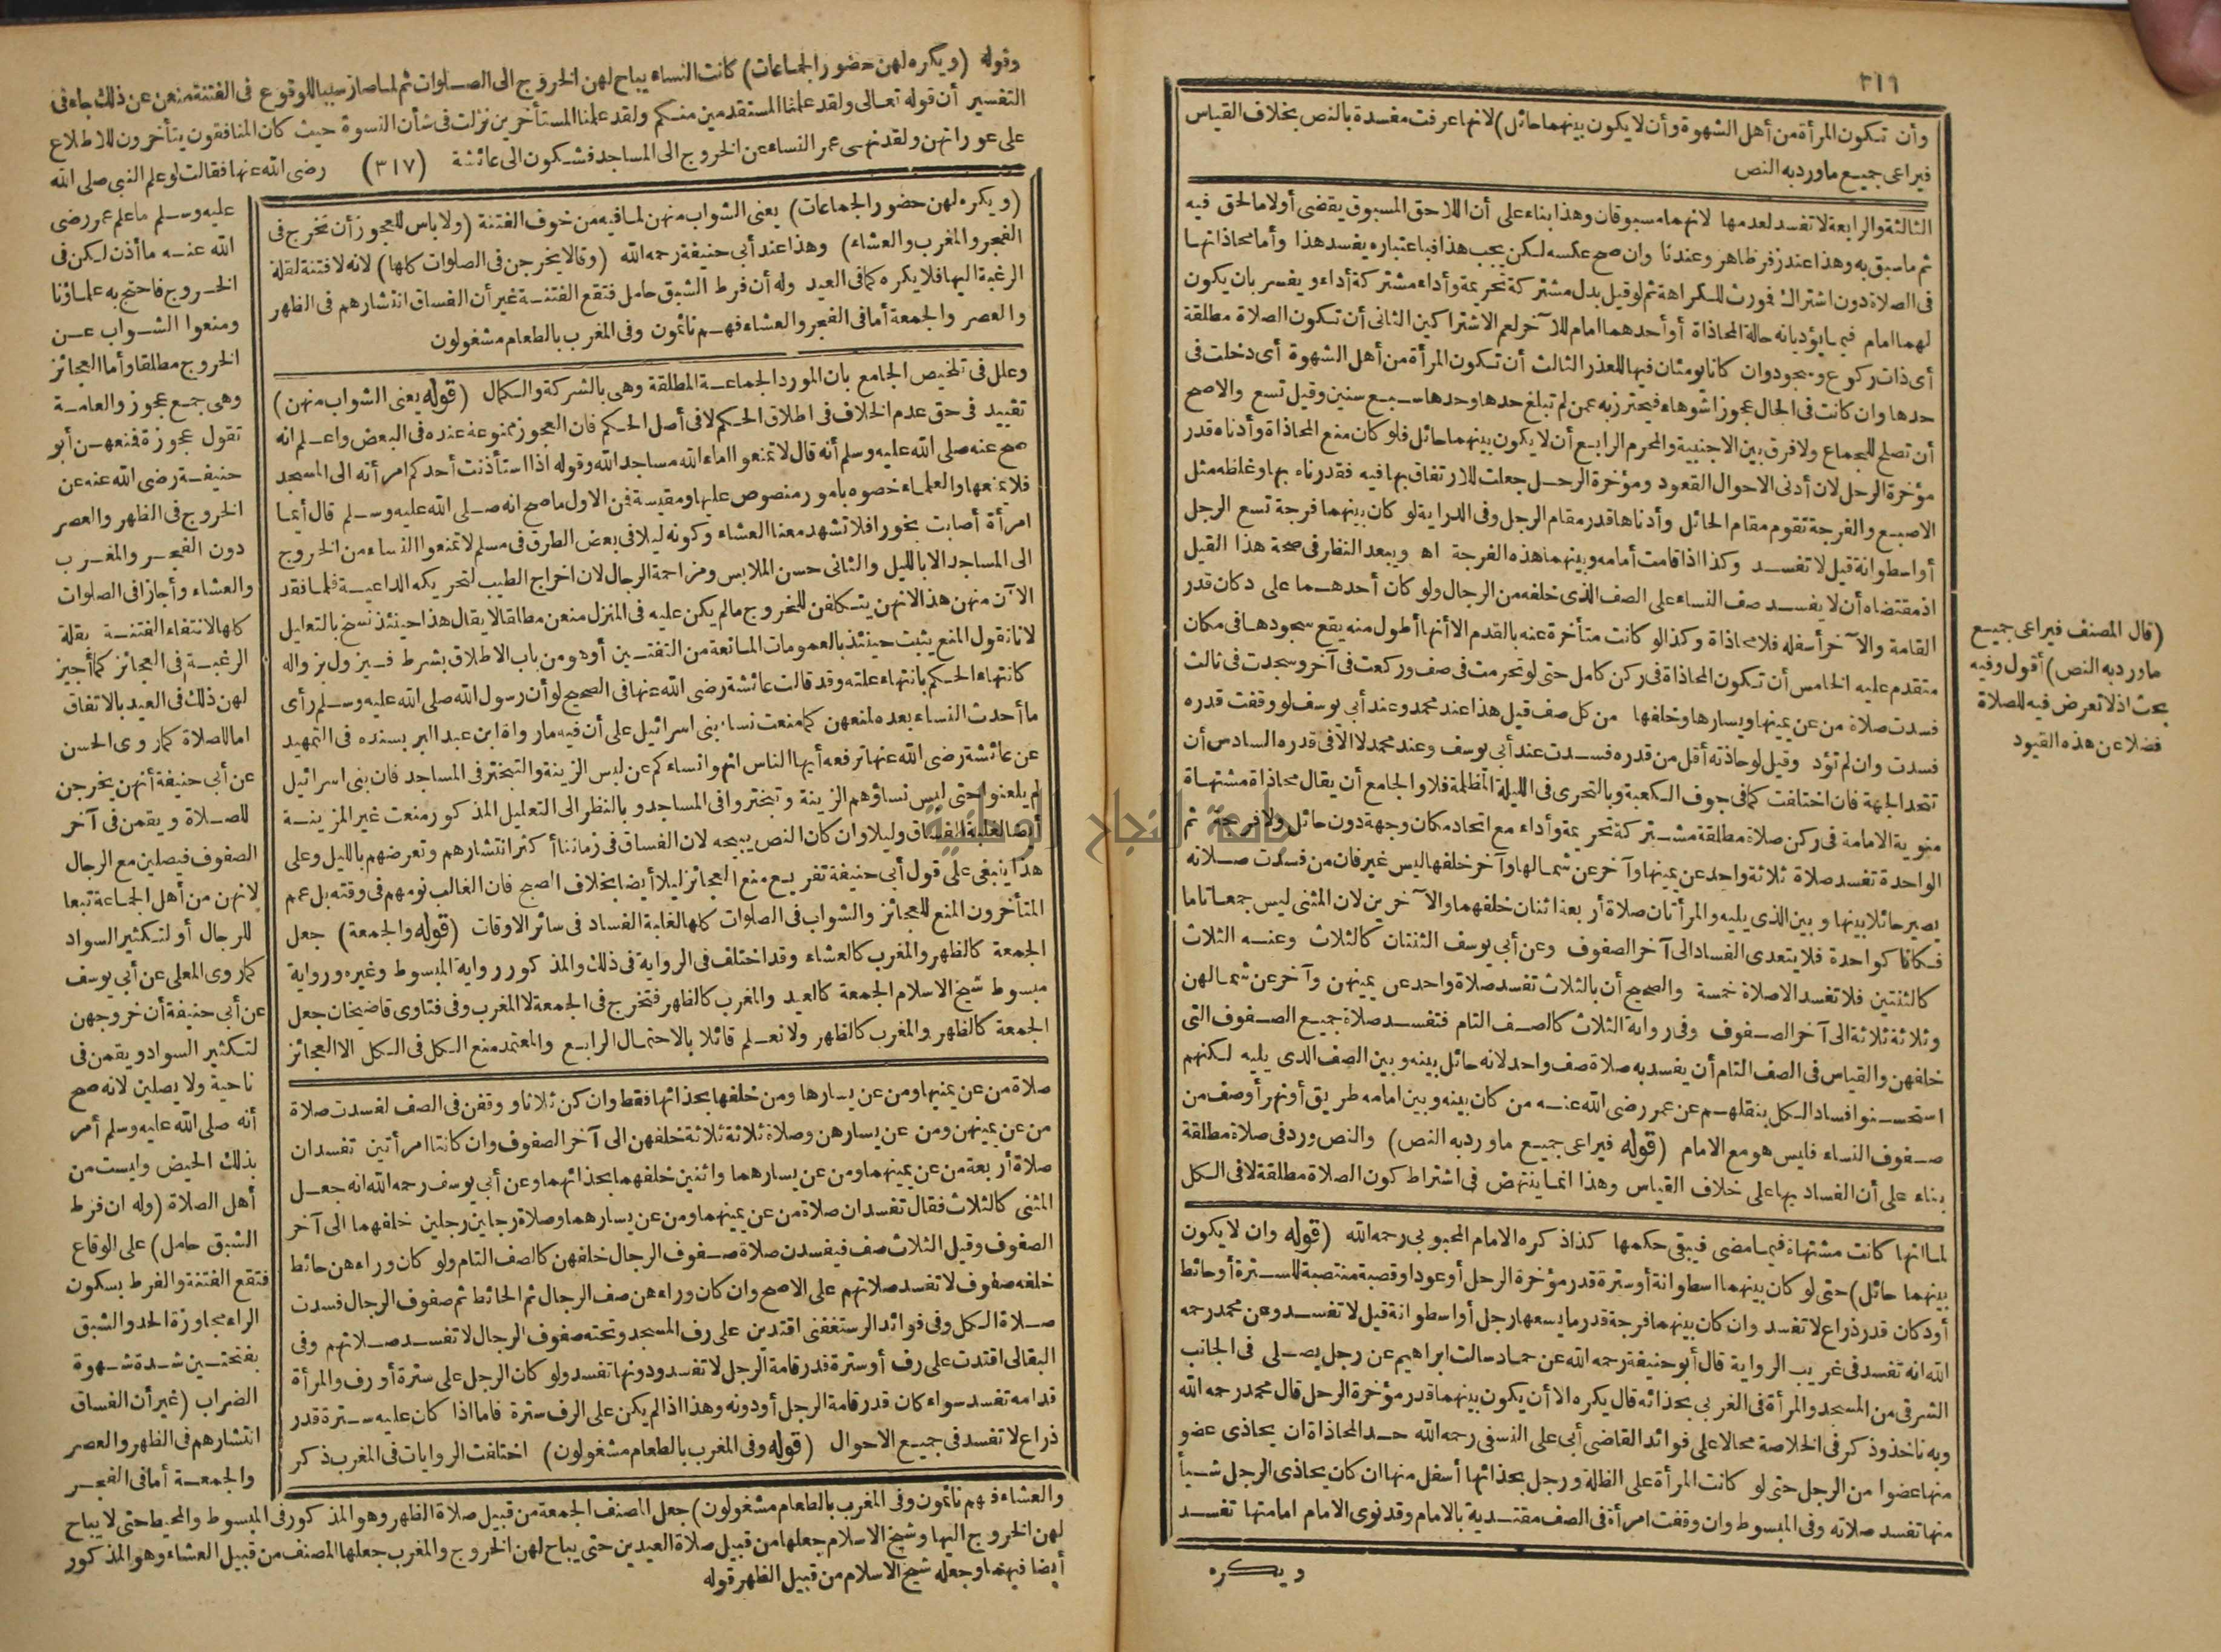 ٣١٦
وأن تكون المرأة من أهل الشهوة وأن لا يكون بينهما حائل) لانها عرفت مفسدة بالنص بخلاف القياس
فيراعى جميع ما ورد به النص
الثالثة والرابعة لا تفسد لعدمها لانهما مسبوقان وهذا بناء على أن اللاحق المسبوق يقضى أولا ما لحق فيه
ثم ما سبق به وهذا عند زفر ظاهر وعندنا وان صح عكسه لكن يجب هذا فباعتباره يفسد هذا وأما محاذاتها
فى الصلاة دون اشتراك فمورث للكراهة ثم لو قيل بدل مشتركة تحريمة وأداء مشتركة أداء ويفسر بان يكون
لهما امام فيما يؤديانه حالة المحاذاة أو أحدهما امام للآخر لعم الاشتراكين الثانى أن تكون الصلاة مطلقة
أى ذات ركوع وسجود وان كانا يومئان فيها للعذر الثالث أن تكون المرأة من أهل الشهوة أى دخلت فى
حدها وان كانت فى الحال عجوزا شوهاء فيحترز به عمن لم تبلغ حدها وحدها سبع سنين وقيل تسع والاصح
أن تصلح للجماع ولا فرق بين الاجنبية والمحرم الرابع أن لا يكون بينهما حائل فلو كان منع المحاذاة وأدناه قدر
مؤخرة الرحل لان أدنى الاحوال القعود ومؤخرة الرحل جعلت للارتفاق بها فيه فقدرناه بها وغلظه مثل
الاصبع والفرجة تقوم مقام الحائل وأدناها قدر مقام الرجل وفى الدراية لو كان بينهما فرجة تسع الرجل
أو اسطوانة قيل لا تفسد وكذا اذا قامت أمامه وبينهما هذه الفرجة اه ويبعد النظر فى صحة هذا القيل
اذ مقتضاه أن لا يفسد صف النساء على الصف الذى خلفه من الرجال ولو كان أحدهما على دكان قدر
القامة والآخر أسفله فلا محاذاة وكذا لو كانت متأخرة عنه بالقدم الا أنها أطول منه يقع سجودها فى مكان
متقدم عليه الخامس أن تكون المحاذاة فى ركن كامل حتى لو تحرمت فى صف وركعت فى آخر وسجدت فى ثالث
فسدت صلاة من عن يمينها ويسارها وخلفها من كل صف قيل هذا عند محمد وعند أبى يوسف لو وقفت قدره
فسدت وان لم تؤد وقيل لو حاذته أقل من قدره فسدت عند أبى يوسف وعند محمد لا الا فى قدره السادس أن
تتحد الجهة فان اختلفت كما فى جوف الكعبة وبالتحرى فى الليلة المظلمة فلا والجامع أن يقال محاذاة مشتهاة
منوية الامامة فى ركن صلاة مطلقة مشتركة تحريمة وأداء مع اتحاد مكان وجهة دون حائل ولا فرجة ثم
الواحدة تفسد صلاة ثلاثة واحد عن يمينها وآخر عن شمالها وآخر خلفها ليس غير فان من فسدت صلاته
يصير حائلا بينها وبين الذى يليه والمرأتان صلاة أربعة اثنان خلفهما والآخرين لان المثنى ليس جمعا تاما
فكانا كواحدة فلا يتعدى الفساد الى آخر الصفوف وعن أبى يوسف الثنتان كالثلاث وعنه الثلاث
كالثنتين فلا تفسد الا صلاة خمسة والصحيح أن بالثلاث تفسد صلاة واحد عن يمينهن وآخر عن شمالهن
وثلاثة ثلاثة الى آخر الصفوف وفى رواية الثلاث كالصف التام فتفسد صلاة جميع الصفوف التى
خلفهن والقياس فى الصف التام أن يفسد به صلاة صف واحد لانه حائل بينه وبين الصف الذى يليه لكنهم
استحسنوا فساد الكل بنقلهم عن عمر رضى الله عنه من كان بينه وبين امامه طريق أو نهر أو صف من
صفوف النساء فليس هو مع الامام (قوله فيراعى جميع ما ورد به النص) والنص ورد فى صلاة مطلقة
بناء على أن الفساد بها على خلاف القياس وهذا انما ينتهض فى اشتراط كون الصلاة مطلقة لا فى الكل
لما انها كانت مشتهاة فيما مضى فيبقى حكمها كذا ذكره الامام المحبوبى رحمه الله (قوله وان لا يكون
بينهما حائل) حتى لو كان بينهما اسطوانة أو سترة قدر مؤخرة الرحل أو عود أو قصبة منتصبة للسترة أو حائط
أو دكان قدر ذراع لا تفسد وان كان بينهما فرجة قدر ما يسعها رجل أو اسطوانة قيل لا تفسد وعن محمد رحمه
الله انه تفسد فى غريب الرواية قال أبو حنيفة رحمه الله عن حماد سالت ابراهيم عن رجل يصلى فى الجانب
الشرقى من المسجد والمرأة فى الغربى بحذائه قال يكره الا أن يكون بينهما قدر مؤخرة الرحل قال محمد رحمه الله
وبه ناخذ وذكر فى الخلاصة محالا على فوائد القاضى أبى على النسفى رحمه الله حد المحاذاة ان يحاذى عضو
منها عضوا من الرجل حتى لو كانت المرأة على الظلة ورجل بحذائها أسفل منها ان كان يحاذى الرجل شيأ
منها تفسد صلاته وفى المبسوط وان وقفت امرأة فى الصف مقتدية بالامام وقد نوى الامام امامتها تفسد
ويكره
(قال المصنف فيراعى جميع
ما ورد به النص) أقول وفيه
بحث اذ لا تعرض فيه للصلاة
فضلا عن هذه القيود
وقوله (ويكره لهن حضور الجماعات) كانت النساء يباح لهن الخروج الى الصلوات ثم لما صار سببا للوقوع فى الفتنة منعن عن ذلك جاء فى
التفسير أن قوله تعالى ولقد علمنا المستقدمين منكم ولقد علمنا المستأخرين نزلت فى شأن النسوة حيث كان المنافقون يتأخرون للاطلاع
على عوراتهن ولقد نهى عمر النساء عن الخروج الى المساجد فشكون الى عائشة (٣١٧) رضى الله عنها فقالت لو علم النبى صلى الله
عليه وسلم ما علم عمر رضى
الله عنه ما أذن لكن فى
الخروج فاحتج به علماؤنا
ومنعوا الشواب عن
الخروج مطلقا وأما العجائز
وهى جمع عجوز والعامة
تقول عجوزة فمنعهن أبو
حنيفة رضى الله عنه عن
الخروج فى الظهر والعصر
دون الفجر والمغرب
والعشاء وأجازا فى الصلوات
كلها لانتفاء الفتنة بقلة
الرغبة فى العجائز كما أجيز
لهن ذلك فى العيد بالاتفاق
اما للصلاة كما روى الحسن
عن أبى حنيفة أنهن يخرجن
للصلاة ويقمن فى آخر
الصفوف فيصلين مع الرجال
لانهن من أهل الجماعة تبعا
للرجال أو لتكثير السواد
كما روى المعلى عن أبى يوسف
عن أبى حنيفة أن خروجهن
لتكثير السواد ويقمن فى
ناحية ولا يصلين لانه صح
أنه صلى الله عليه وسلم أمر
بذلك الحيض وليست من
أهل الصلاة (وله ان فرط
الشبق حامل) على الوقاع
فتقع الفتنة والفرط بسكون
الراء مجاوزة الحد والشبق
بفتحتين شدة شهوة
الضراب (غير أن الفساق
انتشارهم فى الظهر والعصر
والجمعة أما فى الفجر
(ويكره لهن حضور الجماعات) يعنى الشواب منهن لما فيه من خوف الفتنة (ولا باس للعجوز أن تخرج فى
الفجر والمغرب والعشاء) وهذا عند أبى حنيفة رحمه الله (وقالا يخرجن فى الصلوات كلها) لانه لا فتنة لقلة
الرغبة اليها فلا يكره كما فى العيد وله أن فرط الشبق حامل فتقع الفتنة غير أن الفساق انتشارهم فى الظهر
والعصر والجمعة أما فى الفجر والعشاء فهم نائمون وفى المغرب بالطعام مشغولون
وعلل فى تلخيص الجامع بان المورد الجماعة المطلقة وهى بالشركة والكمال (قوله يعنى الشواب منهن)
تقييد فى حق عدم الخلاف فى اطلاق الحكم لا فى أصل الحكم فان العجوز ممنوعة عنده فى البعض واعلم انه
صح عنه صلى الله عليه وسلم أنه قال لا تمنعوا اماء الله مساجد الله وقوله اذا استأذنت أحدكم امرأته الى المسجد
فلا يمنعها والعلماء خصوه بامور منصوص عليها ومقيسة فمن الاول ما صح انه صلى الله عليه وسلم قال أيما
امرأة أصابت بخورا فلا تشهد معنا العشاء وكونه ليلا فى بعض الطرق فى مسلم لا تمنعوا النساء من الخروج
الى المساجد الا بالليل والثانى حسن الملابس ومزاحمة الرجال لان اخراج الطيب لتحريكه الداعية فلما فقد
الآن منهن هذا لانهن يتكلفن للخروج ما لم يكن عليه فى المنزل منعن مطلقا لا يقال هذا حينئذ نسخ بالتعليل
لانا نقول المنع يثبت حينئذ بالعمومات المانعة من التفتين أو هو من باب الاطلاق بشرط فيزول بزواله
كانتهاء الحكم بانتهاء علته وقد قالت عائشة رضى الله عنها فى الصحيح لو أن رسول الله صلى الله عليه وسلم رأى
ما أحدث النساء بعده لمنعهن كما منعت نساء بنى اسرائيل على أن فيه ما رواه ابن عبد البر بسنده فى التمهيد
عن عائشة رضى الله عنها ترفعه أيها الناس انهوا نساءكم عن لبس الزينة والتبختر فى المساجد فان بنى اسرائيل
لم يلعنوا حتى لبس نساؤهم الزينة وتبختروا فى المساجد وبالنظر الى التعليل المذكور منعت غير المزينة
أيضا لغلبة الفساق وليلا وان كان النص يبيحه لان الفساق فى زماننا أكثر انتشارهم وتعرضهم بالليل وعلى
هذا ينبغى على قول أبى حنيفة تفريع منع العجائز ليلا أيضا بخلاف الصبح فان الغالب نومهم فى وقته بل عمم
المتأخرون المنع للعجائز والشواب فى الصلوات كلها لغلبة الفساد فى سائر الاوقات (قوله والجمعة) جعل
الجمعة كالظهر والمغرب كالعشاء وقد اختلف فى الرواية فى ذلك والمذكور رواية المبسوط وغيره ورواية
مبسوط شيخ الاسلام الجمعة كالعيد والمغرب كالظهر فتخرج فى الجمعة لا المغرب وفى فتاوى قاضيخان جعل
الجمعة كالظهر والمغرب كالظهر ولا نعلم قائلا بالاحتمال الرابع والمعتمد منع الكل فى الكل الا العجائز
صلاة من عن يمينها ومن عن يسارها ومن خلفها بحذائها فقط وان كن ثلاثا ووقفن فى الصف لفسدت صلاة
من عن يمينهن ومن عن يسارهن وصلاة ثلاثة ثلاثة خلفهن الى آخر الصفوف وان كانتا امرأتين تفسدان
صلاة أربعة من عن يمينهما ومن عن يسارهما واثنين خلفهما بحذائهما وعن أبى يوسف رحمه الله انه جعل
المثنى كالثلاث فقال تفسدان صلاة من عن يمينهما ومن عن يسارهما وصلاة رجلين رجلين خلفهما الى آخر
الصفوف وقيل الثلاث صف فيفسدن صلاة صفوف الرجال خلفهن كالصف التام ولو كان وراءهن حائط
خلفه صفوف لا تفسد صلاتهم على الاصح وان كان وراءهن صف الرجال ثم الحائط ثم صفوف الرجال فسدت
صلاة الكل وفى فوائد الرستغفنى اقتدين على رف المسجد وتحته صفوف الرجال لا تفسد صلاتهم وفى
البقالى اقتدت على رف أو سترة قدر قامة الرجل لا تفسد ودونها تفسد ولو كان الرجل على سترة أو رف والمرأة
قدامه تفسد سواء كان قدر قامة الرجل أو دونه وهذا اذا لم يكن على الرف سترة فاما اذا كان عليه سترة قدر
ذراع لا تفسد فى جميع الاحوال (قوله وفى المغرب بالطعام مشغولون) اختلفت الروايات فى المغرب ذكر
والعشاء فهم نائمون وفى المغرب بالطعام مشغولون) جعل المصنف الجمعة من قبيل صلاة الظهر وهو المذكور فى المبسوط والمحيط حتى لا يباح
لهن الخروج اليها وشيخ الاسلام جعلها من قبيل صلاة العيدين حتى يباح لهن الخروج والمغرب جعلها المصنف من قبيل العشاء وهو المذكور
أيضا فيهما وجعله شيخ الاسلام من قبيل الظهر قوله
جامعة النجاح الوطنية